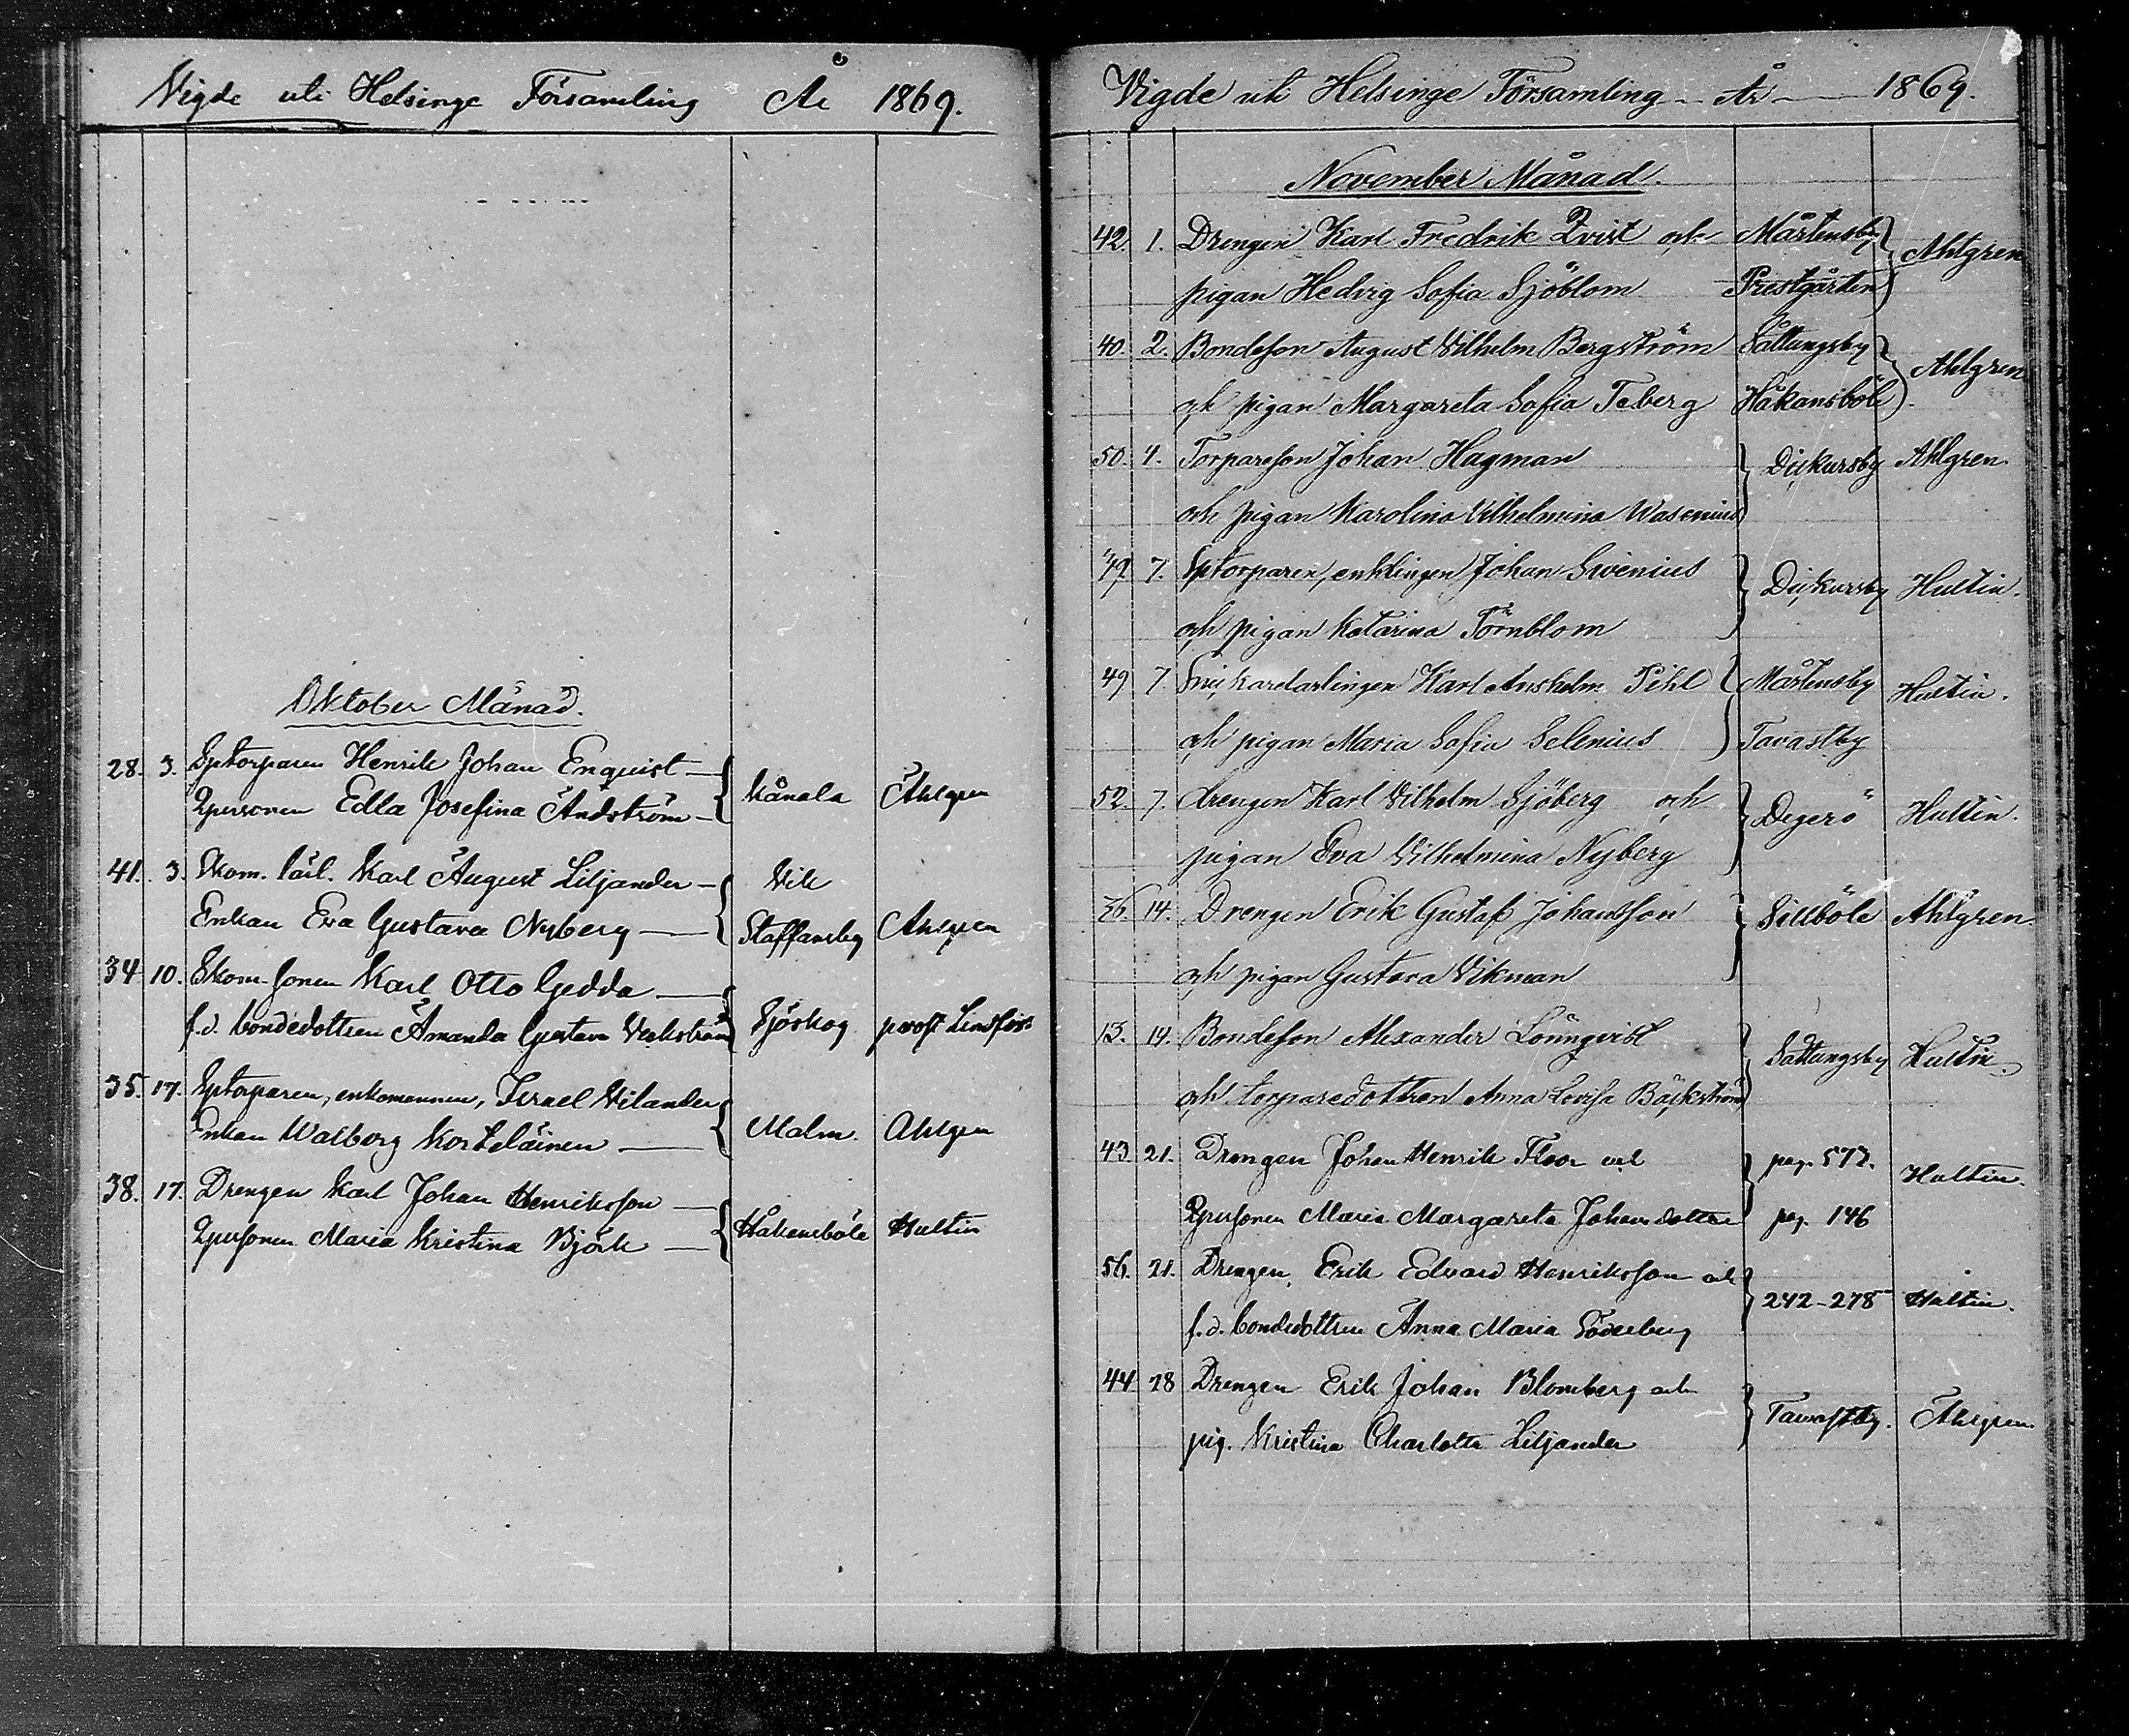 Vigde uti Helsinge Församling År 1869.
Oktober Månad.
28. 3. Sptorparen Henrik Johan Enquist — Kånala Ahlgren
Qpersonen Edla Josefina Andström —
41. 3. Skom. lärl. Karl August Liljander — Vik
Enkan Eva Gustava Nyberg — Staffansby Ahlgren
34 10. Skom. sonen Karl Otto Gedda —
f.d. bondedottren Amanda Gustava Veckström Sjöskog prost Lindfors
35. 17. Sptorparen, enkomannen, Israel Vilander
Enkan Walborg Kortelainen — Malm. Ahlgren
38. 17. Drengen Karl Johan Henriksson —
Qpersonen Maria Kristina Björk — Håkansböle Hultin
Vigde uti Helsinge Församling - År — 1869.
November Månad.
42. 1. Drengen Karl Fredrik Qvist och Mårtensby Ahlgren
pigan Hedvig Sofia Sjöblom Prestgården
40. 2. Bondeson August Vilhelm Bergström Sattungsby Ahlgren
och pigan Margareta Sofia Teberg Håkansböle
50. 4. Torpareson Johan Hagman Dickursby Ahlgren
och pigan Karolina Vilhelmina Wasenius
49 7. Sptorparen, enklingen Johan Swenius Dickursby Hultin.
och pigan Katarina Törnblom
49 7. Snickarelärlingen Karl Anshelm Pihl Mårtensby Hultin.
och pigan Maria Sofia Selenius Tavastby
52. 7. drengen Karl Vilhelm Sjöberg och Degerö Hultin.
pigan Eva Vilhelmina Nyberg
36. 14. Drengen Erik Gustaf Johansson Sillböle Ahlgren.
och pigan Gustava Vikman
13. 14. Bondeson Alexander Lönnqvist Sattungsby Hultin.
och torparedottren Anna Lovisa Bäckström
43. 21. Drengen Johan Henrik Floor och pag. 572. Hultin.
Qpersonen Maria Margareta Johansdotter pag. 146
56. 21. Drengen Erik Edvard Henriksson och 242-278 Hultin.
f.d. bondedottren Anna Maria Söderberg
44 28 Drengen Erik Johan Blomberg och Tavastby. Ahlgren
pig. Kristina Charlotta Liljander